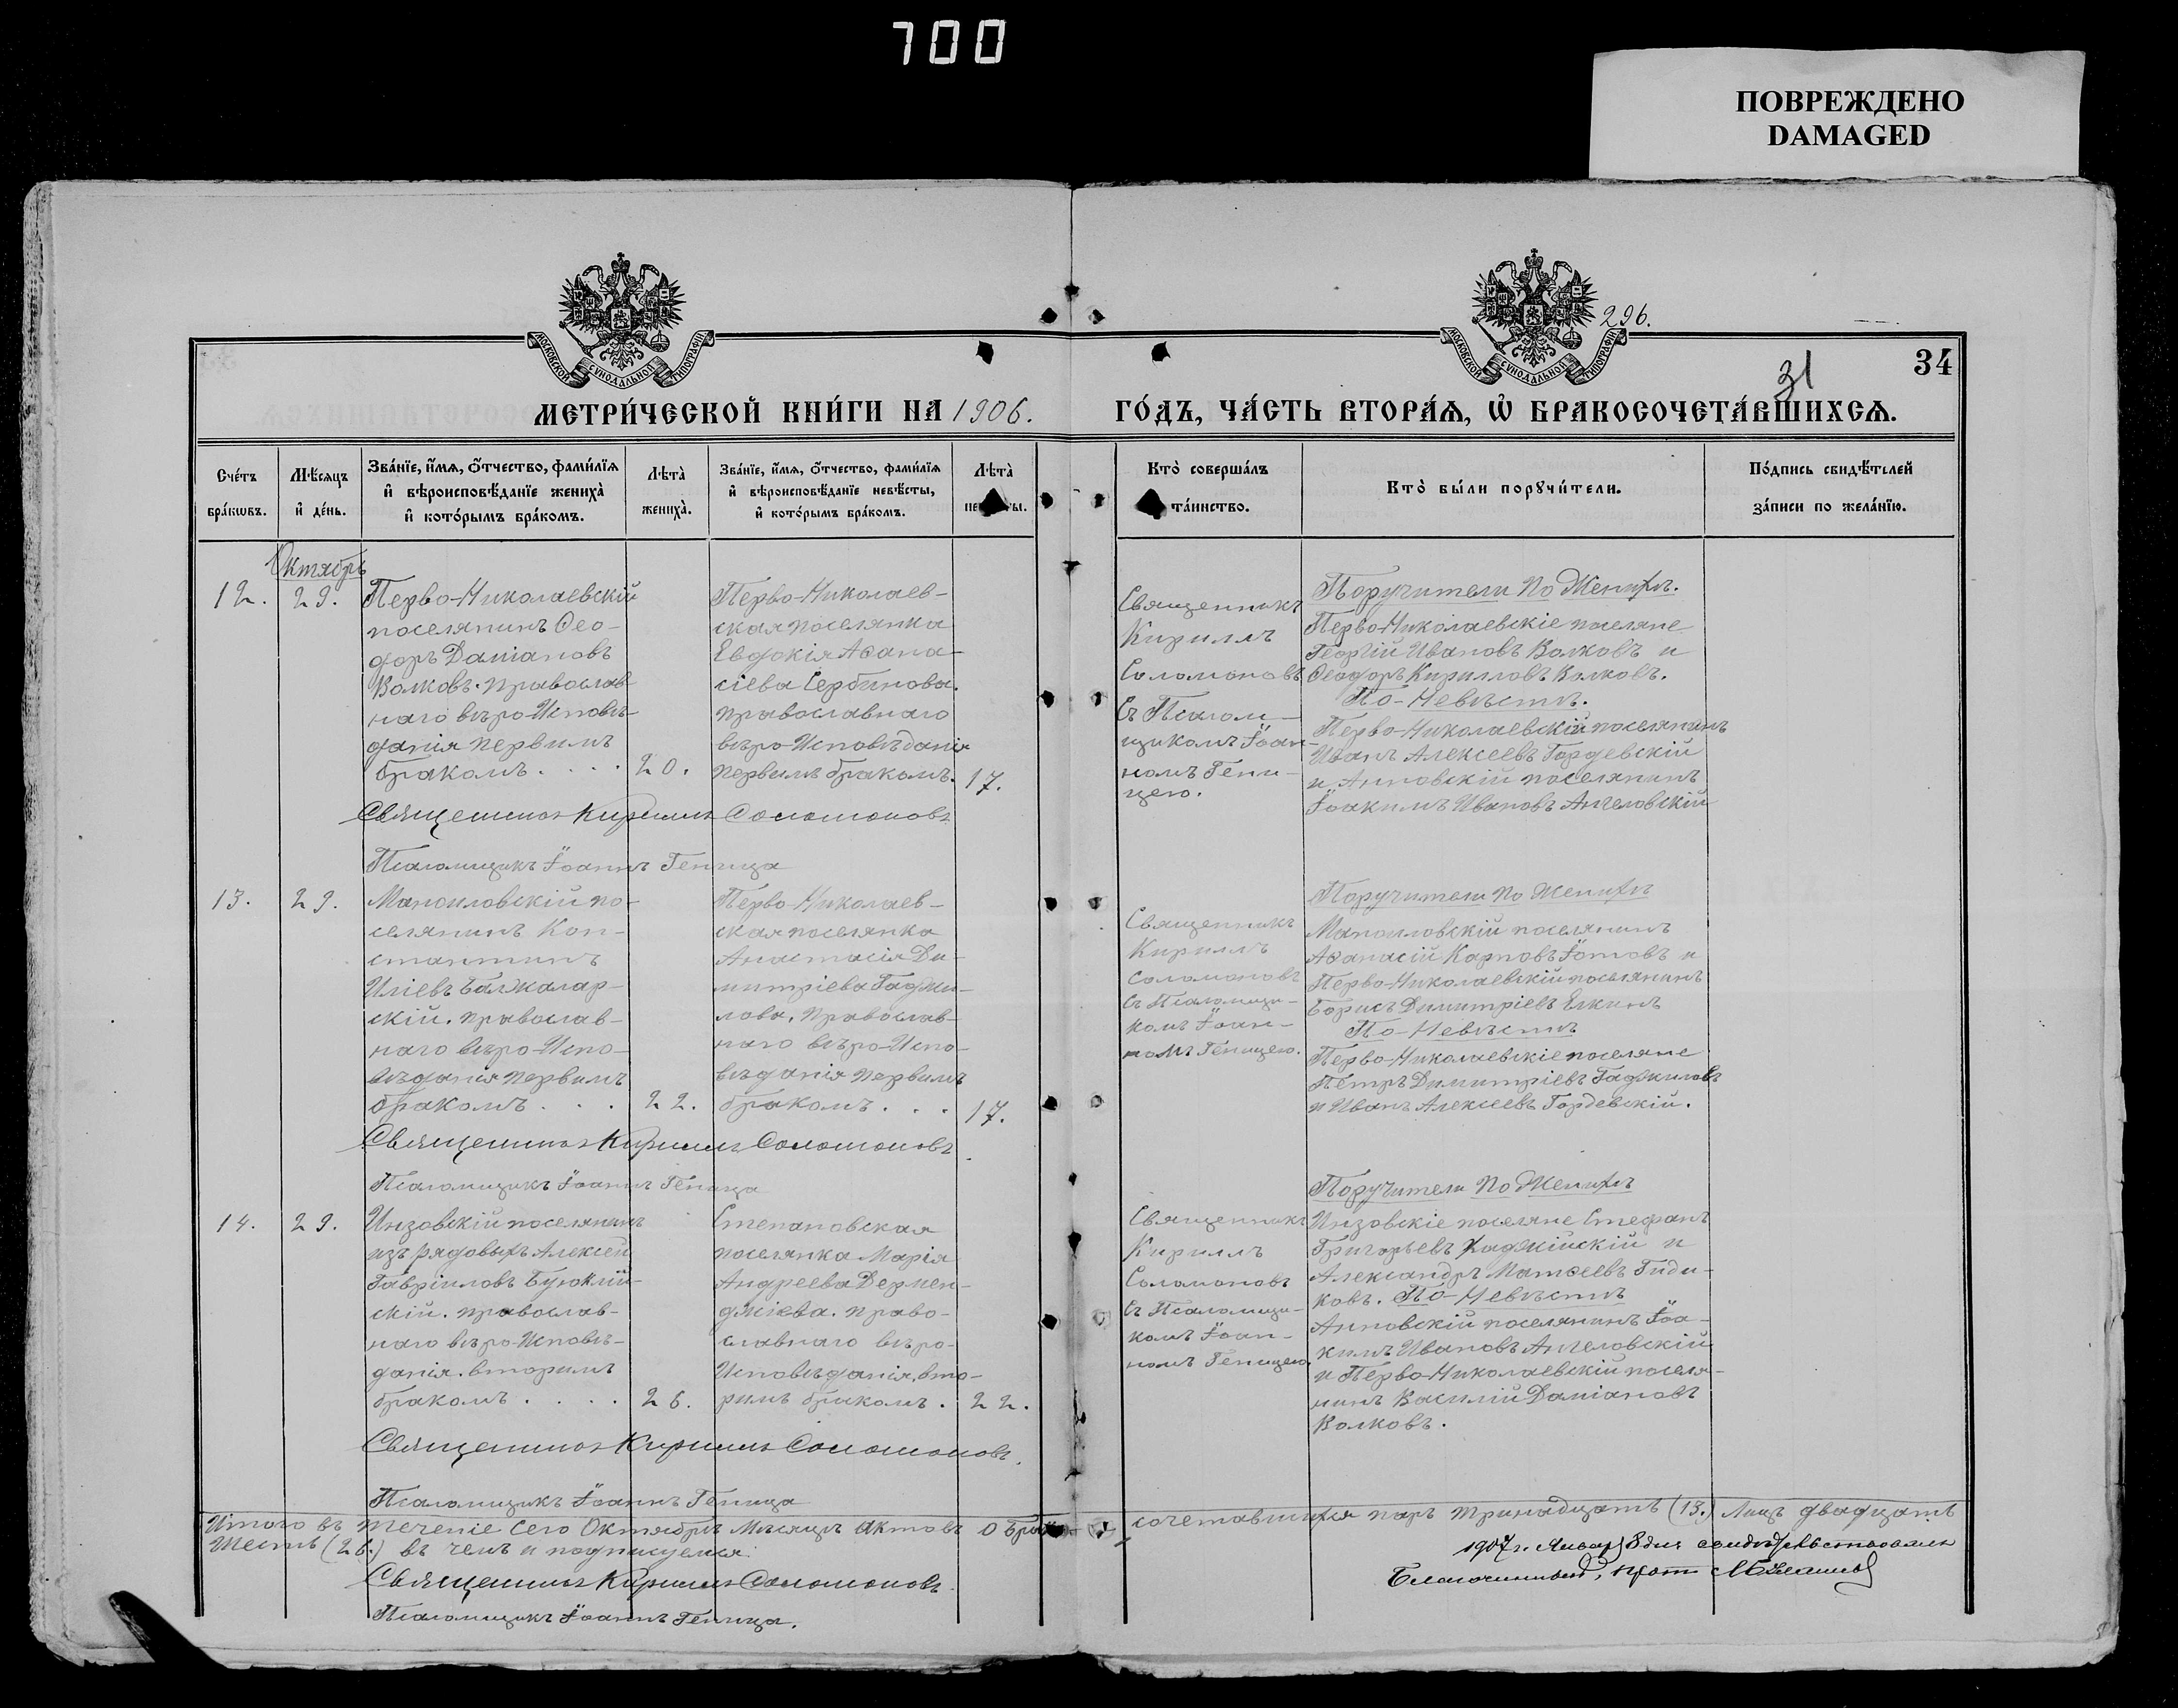 700
ПОВРЕЖДЕНО
DAMAGED
296.
31
34
МОСКОВСКОЙ СѴНОДАЛЬНОЙ ТИПОГРАФІИ
МОСКОВСКОЙ СѴНОДАЛЬНОЙ ТИПОГРАФІИ
МЕТРИ́ЧЕСКОЙ КНИ́ГИ НА 1906. ГО́ДЪ, ЧА́СТЬ ВТОРА́Ѧ, Ѡ҆ БРАКОСОЧЕТА́ВШИХСѦ.
Сче́тъ
бра́кѡвъ.
Мѣ́сѧцъ
и҆ де́нь.
Зва́нїе, и҆́мѧ, ѻ҆́тчество, фами́лїѧ
и҆ вѣроисповѣ́данїе жениха̀
и҆ кото́рымъ бра́комъ.
Лѣта̀
жениха̀.
Зва́нїе, и҆́мѧ, ѻ҆́тчество, фами́лїѧ
и҆ вѣроисповѣ́данїе невѣ́сты,
и҆ кото́рымъ бра́комъ.
Лѣта̀
Кто̀ соверша́лъ
та́инство.
Кто̀ бы́ли порꙋчи́тели.
По́дпись свидѣ́телей
за́писи по жела́нїю.
Октябрь
12.
29.
Перво-Николаевскій
поселянинъ Ѳео-
доръ Даміановъ
Волковъ. православ
наго вѣро-Исповѣ-
данія первымъ
бракомъ. . . .
20.
Перво-Николаев-
ская поселянка
Евдокія Аѳана-
сіева Сербинова.
православнаго
вѣро-Исповѣданія
первымъ бракомъ.
17.
Священникъ
Кириллъ
Соломоновъ
Съ Псалом-
щикомъ Іоан-
номъ Гени-
цею.
Поручители По Женихѣ.
Перво-Николаевскіе поселяне
Георгій Ивановъ Волковъ и
Ѳеодоръ Кирилловъ Волковъ.
По-Невѣстѣ.
Перво-Николаевскій поселянинъ
Иванъ Алексеевъ Гордевскій
и Анновскій поселянинъ
Іоакимъ Ивановъ Ангеловскій
Священникъ Кириллъ Соломоновъ
Псаломщикъ Іоаннъ Геница
13.
29.
Маноиловскій по-
селянинъ Кон-
стантинъ
Иліевъ Балжалар-
скій. православ-
наго вѣро-Испо-
вѣданія первымъ
бракомъ . . .
22.
Перво-Николаев-
ская поселянка
Анастасія Ди-
митріева Гаджи-
лова. Православ-
наго вѣро-Испо-
вѣданія первымъ
бракомъ. . .
17.
Священникъ
Кириллъ
Соломоновъ
съ Псаломщи-
комъ Іоан-
номъ Геницею.
Поручители По Женихѣ
Маноиловскій поселянинъ
Аѳанасій Карповъ Іотовъ и
Перво-Николаевскій поселянинъ
Борисъ Димитріевъ Елкинъ
По-Невѣстѣ
Перво-Николаевскіе поселяне
Петръ Димитріевъ Гаджиловъ
и Иванъ Алексеевъ Гордевскій.
Священникъ Кириллъ Соломоновъ
Псаломщикъ Іоаннъ Геница
14.
29.
Инзовскій поселянинъ
изъ рядовыхъ Алексей
Гавріиловъ Буюклій-
скій. православ-
наго вѣро-Исповѣ-
данія. вторымъ
бракомъ . . . .
26.
Степановская
поселянка Марія
Андреева Дермен-
джіева. право-
славнаго вѣро-
Исповѣданія, вто-
рымъ бракомъ .
22.
Священникъ
Кириллъ
Соломоновъ
съ Псаломщи-
комъ Іоан-
номъ Геницею.
Поручители По Женихѣ
Инзовскіе поселяне Стефанъ
Григорьевъ Хаджійскій и
Александръ Матѳеевъ Гиди-
ковъ. По-Невѣстѣ
Анновскій поселянинъ Іоа-
кимъ Ивановъ Ангеловскій
и Перво-Николаевскій поселя-
нинъ Василій Даміановъ
Волковъ.
Священникъ Кириллъ Соломоновъ.
Псаломщикъ Іоаннъ Геница
Итого въ теченіе сего Октябрь Мѣсяцъ актовъ о бра сочетавшихся паръ тринадцать (13.) Лицъ двадцать
Шесть (26.) въ чемъ и подписуемся.
Священникъ Кириллъ Соломоновъ
Псаломщикъ Іоаннъ Геница.
1907 г. Января 8 дня свидѣтельствовалъ
Благочинный, прот.